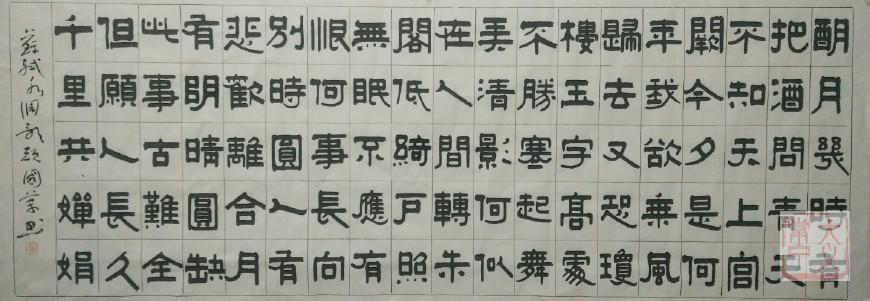 明月幾時有
把酒問青天
不知天上宫
闕今夕是何
年我欲乘風
歸去又恐瓊
樓玉宇高處
不勝寒起舞
弄清影何似
在人間轉朱
閣低綺戶照
無眠不應有
恨何事長向
别時圓人有
悲歡離合月
有明晴圓缺
此事古難全
但願人長久
千里共嬋娟
蘇軾水調歌頭國書